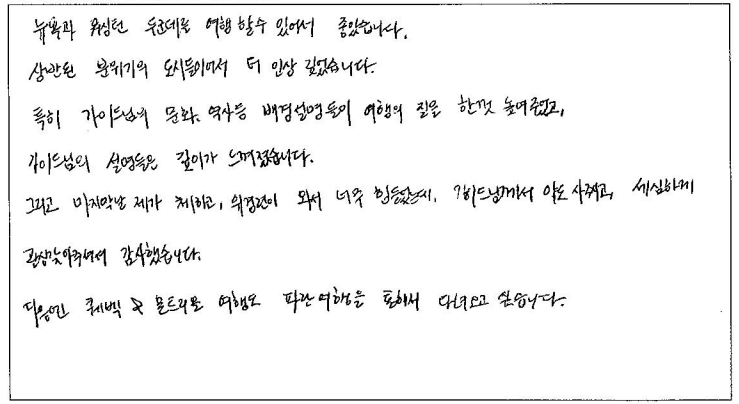 뉴욕과 워싱턴 두군데를 여행 할수 있어서 좋았습니다.
상반된 분위기의 도시들이어서 더 인상 깊었습니다.
특히 가이드님의 문화, 역사등 배경설명들이 여행의 질을 한껏 높여주었고,
가이드님의 설명들은 깊이가 느껴졌습니다.
그리고 마지막날 제가 체하고, 위경련이 와서 너무 힘들었는데, 가이드님께서 약도 사주시고, 세심하게
관심갖아주셔서 감사했습니다.
다음엔 퀘벡 & 몬트리올 여행도 파란여행을 통해서 다녀오고 싶습니다.